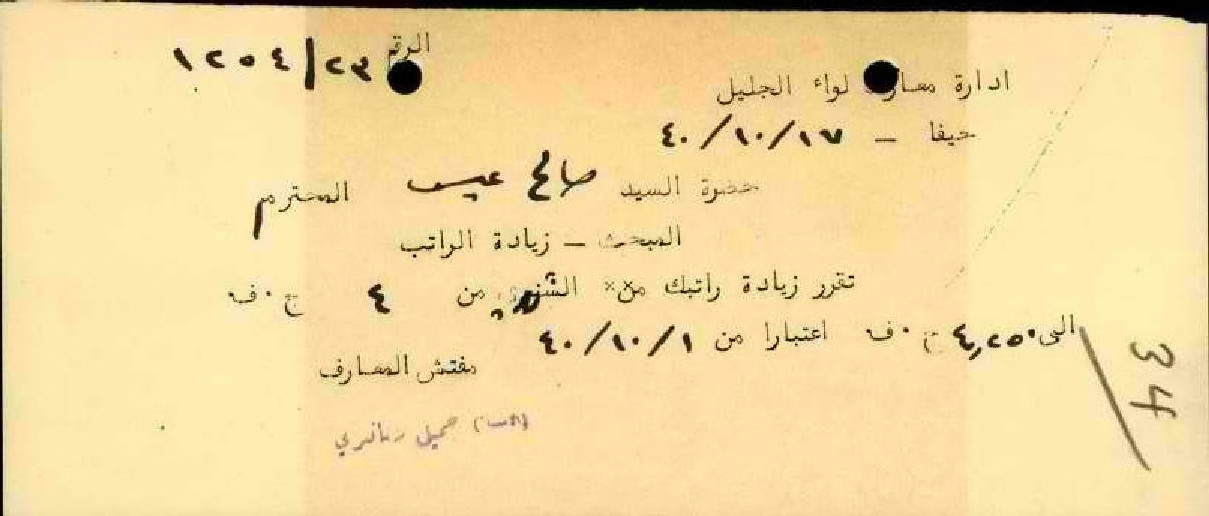 الرقم ١٢٥٤/٢٣
ادارة معارف لواء الجليل
حيفا - ٤٠/١٠/١٧
حضرة السيد صالح عيسى المحترم
المبحث - زيادة الراتب
تقرر زيادة راتبك من×× الشهري من ٤ ج٠ف
الى ٤,٢٥٠ ج٠ف اعتبارا من ٤٠/١٠/١
مفتش المعارف
جميل
34